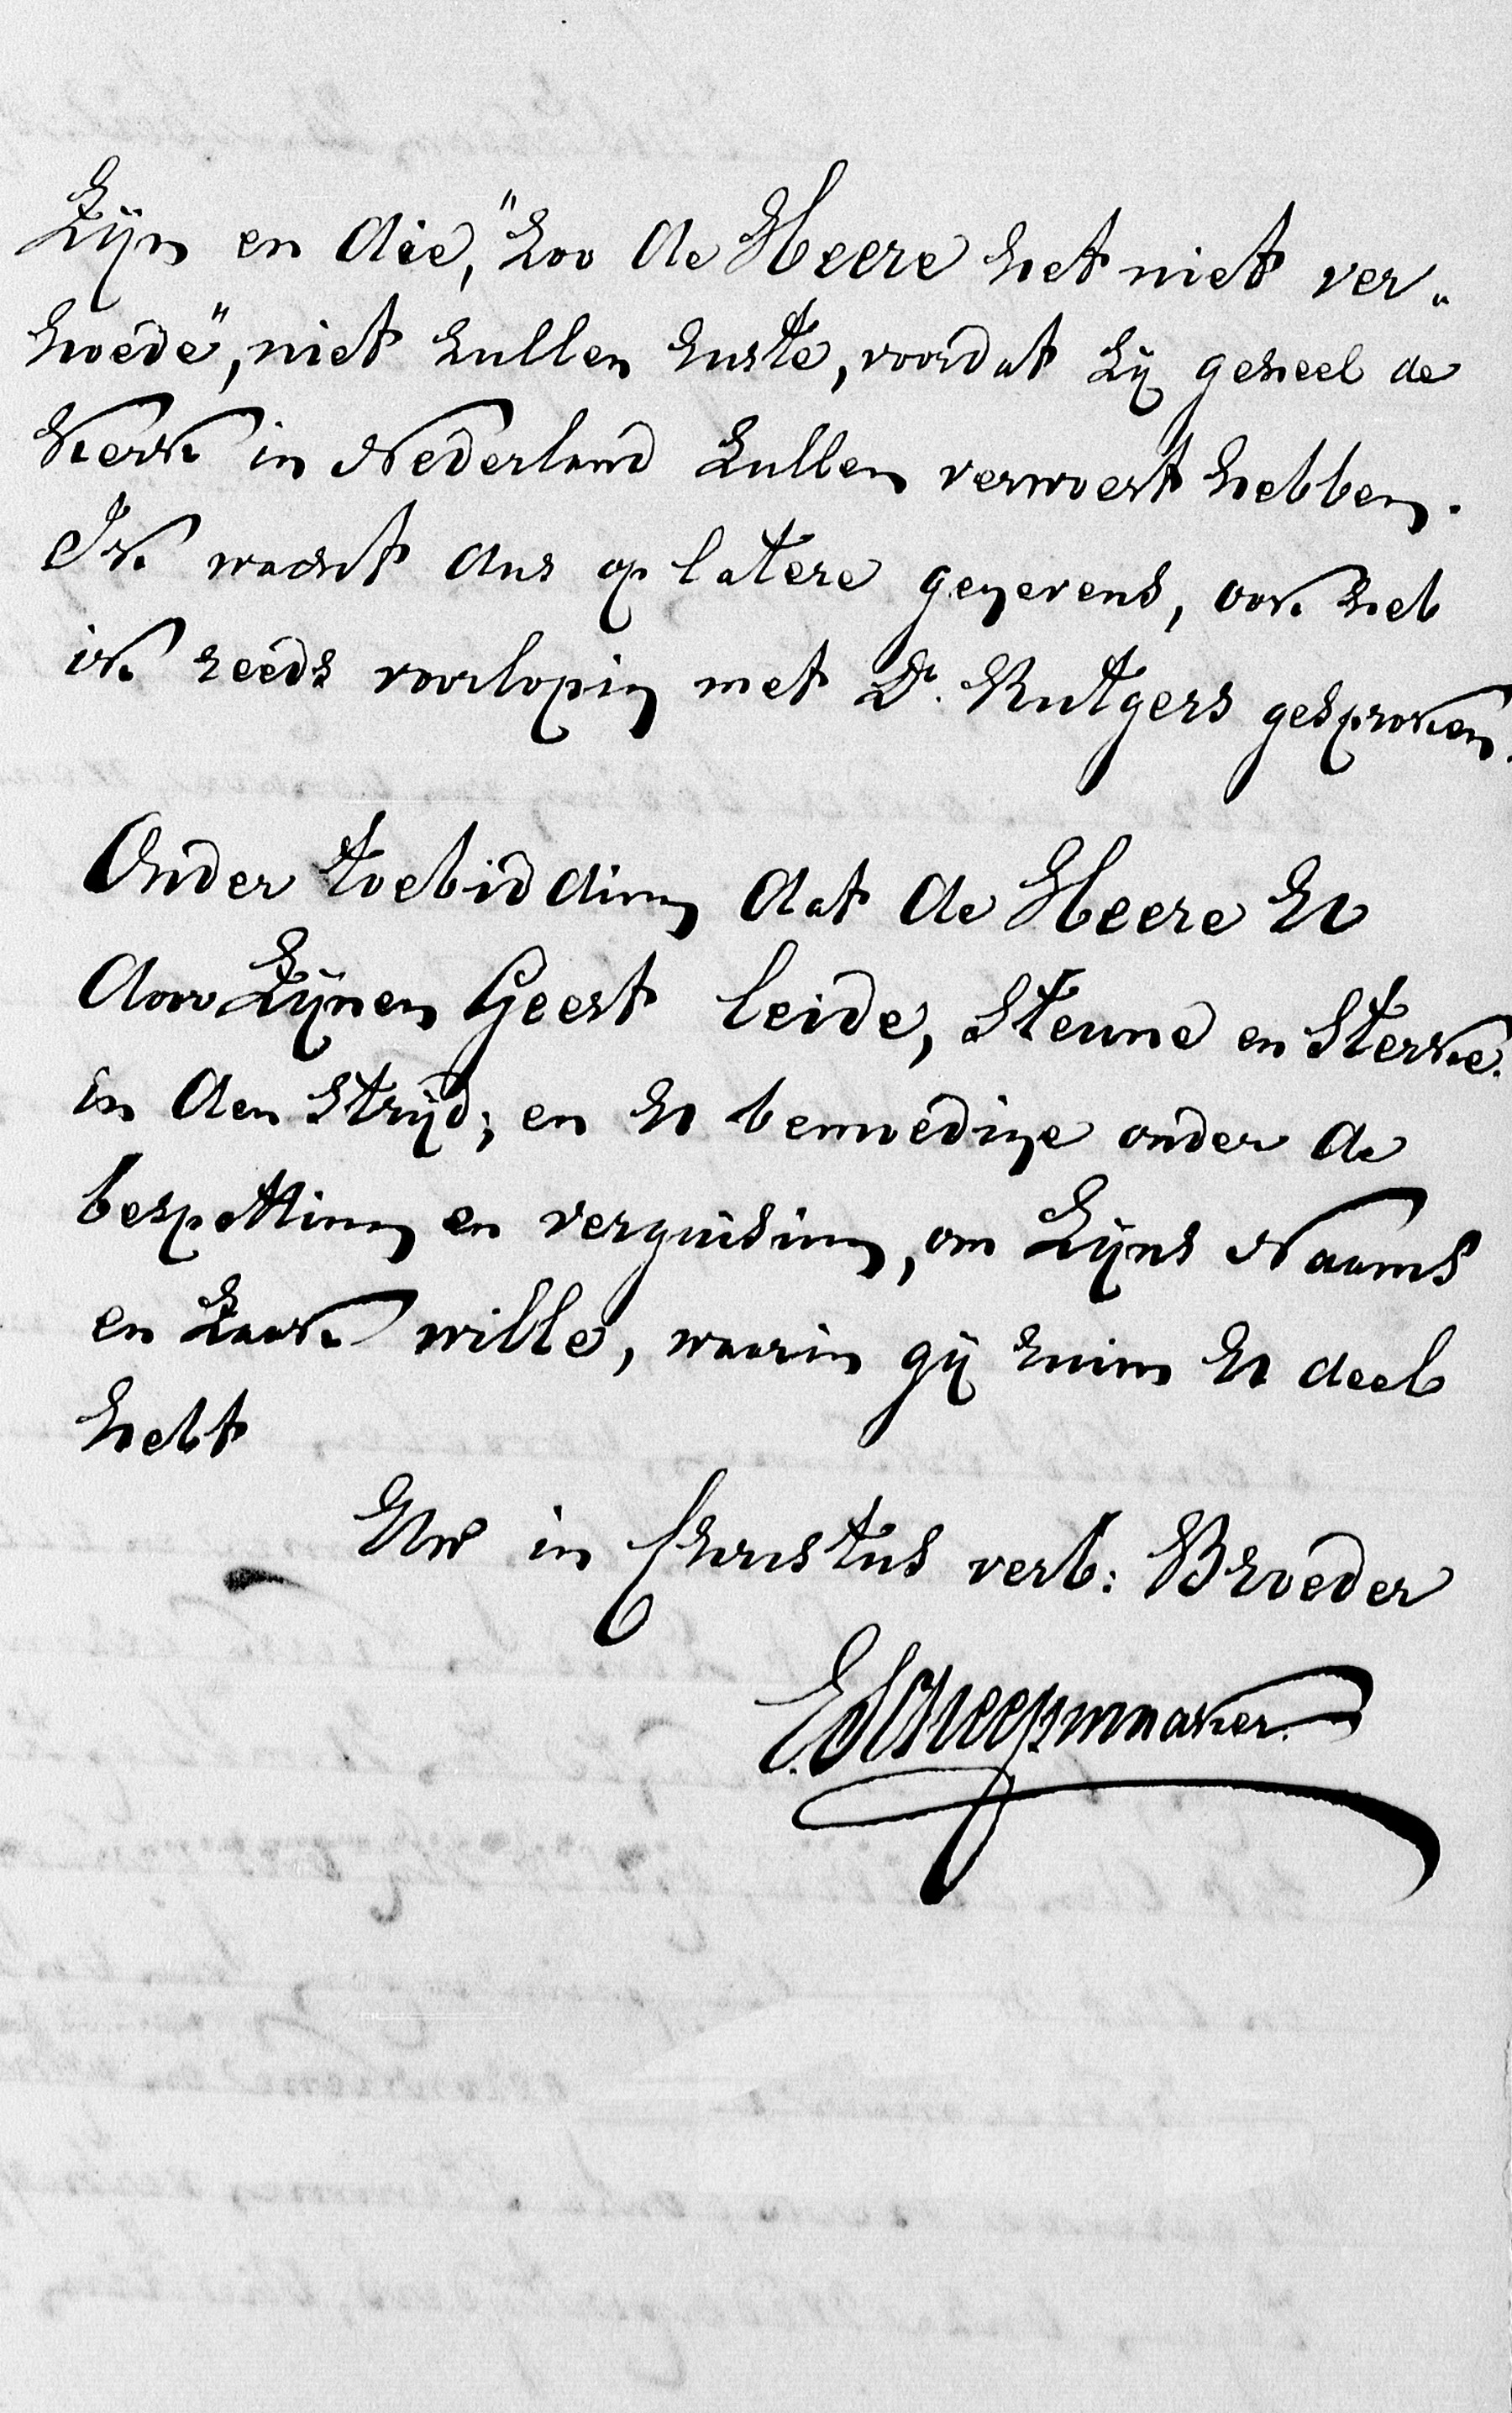 Zijn en die, "zoo de Heere het niet ver-
hoede", niet zullen ruste, voordat zij geheel de
Kerk in Nederland zullen verwoest hebben.
Ik wacht dus op latere gegevens, ook heb
ik reeds voorlopig met Dr. Rutgers gesproken.
Onder toebidding dat de Heere U
door Zijnen Geest leide, steune en sterke.
in den strijd; en U bemoedige onder de
bespotting en verguising, om Zijns Naams
en Zaak wille, waarin gij ruim U deel
hebt
Uw in Christus verb: Broeder
E. Scheepmaaker.